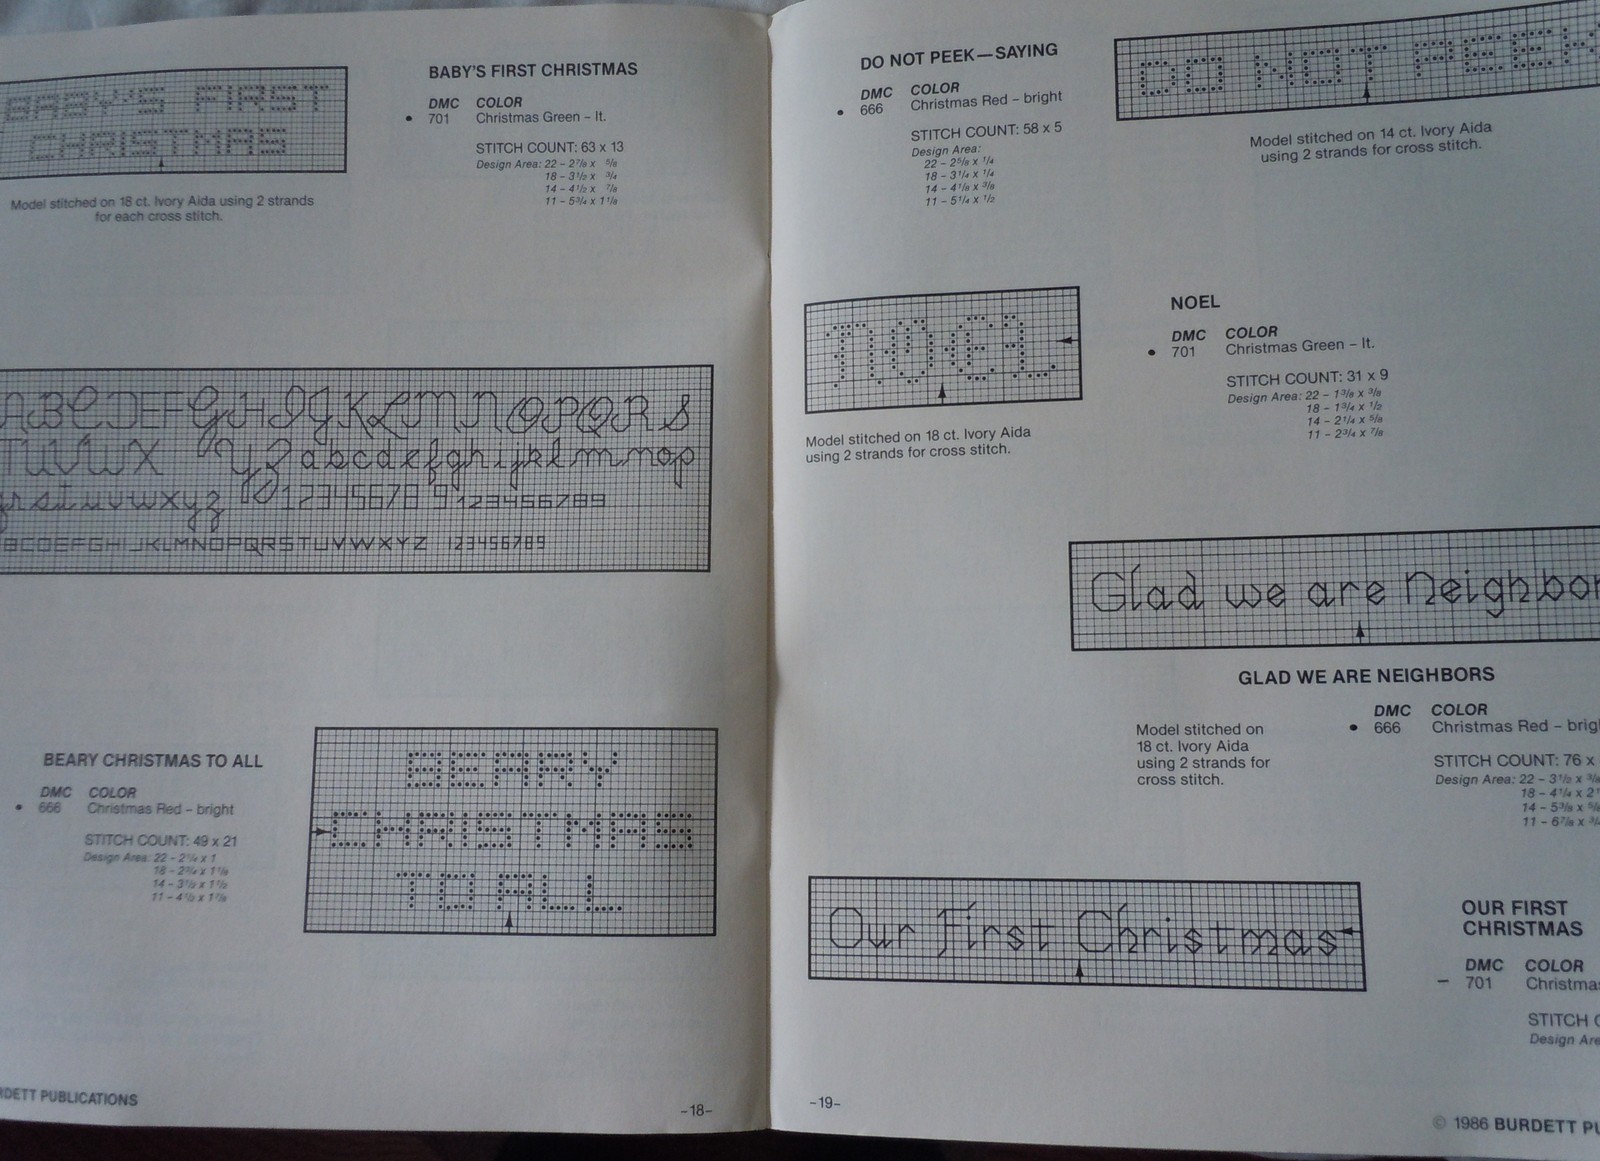 BABY'S FIRST
CHRISTMAS
Model stitched on 18 ct. Ivory Aida using 2 strands
for each cross stitch.
BABY'S FIRST CHRISTMAS
DMC COLOR
• 701 Christmas Green – lt.
STITCH COUNT: 63 x 13
Design Area: 22 – 2⅞ x ⅝
18 – 3½ x ¾
14 – 4½ x ⅞
11 – 5¾ x 1⅛
ABCDEFGHIJKLMNOPQRS
TUVWXYZabcdefghijklmnop
qrstuvwxyz 0123456789 123456789
BCDEFGHIJKLMNOPQRSTUVWXYZ 123456789
BEARY CHRISTMAS TO ALL
DMC COLOR
• 666 Christmas Red – bright
STITCH COUNT: 49 x 21
Design Area: 22 – 2¼ x 1
18 – 2¾ x 1⅛
14 – 3½ x 1½
11 – 4½ x 1⅞
BEARY
CHRISTMAS
TO ALL
PUBLICATIONS
–18–
DO NOT PEEK—SAYING
DMC COLOR
• 666 Christmas Red – bright
STITCH COUNT: 58 x 5
Design Area:
22 – 2⅝ x ¼
18 – 3¼ x ¼
14 – 4⅛ x ⅜
11 – 5¼ x ½
DO NOT PEEK
Model stitched on 14 ct. Ivory Aida
using 2 strands for cross stitch.
NOEL
Model stitched on 18 ct. Ivory Aida
using 2 strands for cross stitch.
NOEL
DMC COLOR
• 701 Christmas Green – lt.
STITCH COUNT: 31 x 9
Design Area: 22 – 1⅜ x ⅜
18 – 1¾ x ½
14 – 2¼ x ⅝
11 – 2¾ x ⅞
Glad we are Neighbor
GLAD WE ARE NEIGHBORS
Model stitched on
18 ct. Ivory Aida
using 2 strands for
cross stitch.
DMC COLOR
• 666 Christmas Red – brig
STITCH COUNT: 76 x
Design Area: 22 – 3½ x
18 – 4¼ x
14 – 5⅜ x
11 – 6⅞ x
Our First Christmas
OUR FIRST
CHRISTMAS
DMC COLOR
– 701 Christma
STITCH
Design Are
–19–
© 1986 BURDETT